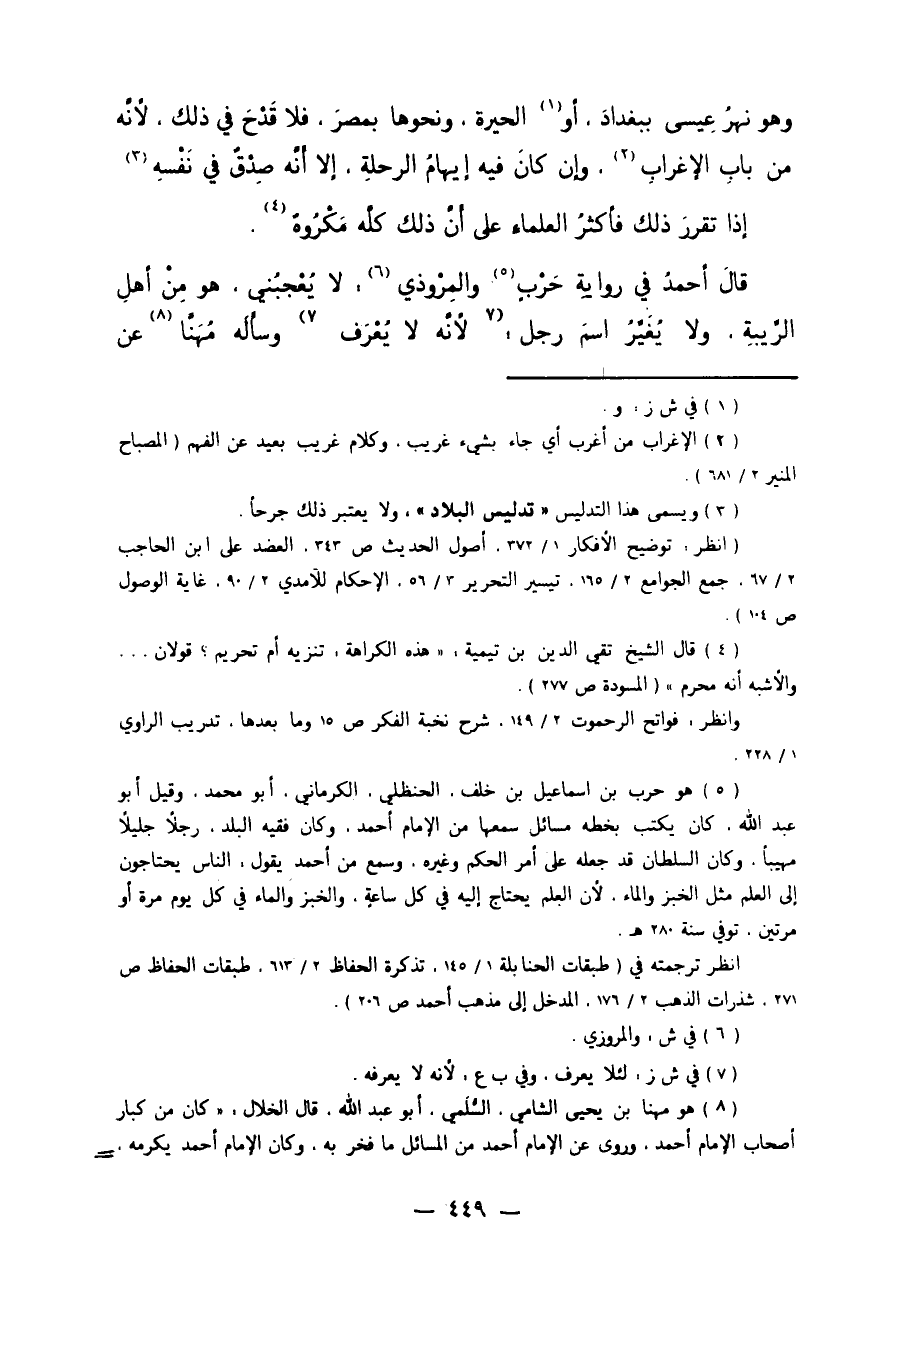 وهو نهرُ عِيسى ببغدادَ ، أو(١) الحيرة ، ونحوها بمصرَ ، فلا قَدْحَ في ذلك ، لأنَّه
من بابِ الإغرابِ(٢) ، وإن كانَ فيه إيهامُ الرحلةِ ، إلا أنَّه صِدْقٌ في نَفْسهِ(٣)
إذا تقررَ ذلك فأكثرُ العلماء على أنَّ ذلك كلَّه مَكْرُوهٌ(٤) .
قالَ أحمدُ في روايةِ حَرْبٍ(٥) والمِرْوذي(٦) : لا يُعْجبُني ، هو مِنْ أهلِ
الرِّيبةِ ، ولا يُغَيَّرُ اسمَ رجل ،(٧ لأنَّه لا يُعْرَف ٧) وسألَه مُهَنَّا(٨) عن
( ١ ) في ش ز : و .
( ٢ ) الإغراب من أغرب أي جاء بشيء غريب ، وكلام غريب بعيد عن الفهم ( المصباح
المنير ٢ / ٦٨١ ) .
( ٣ ) ويسمى هذا التدليس « تدليس البلاد » ، ولا يعتبر ذلك جرحاً .
( انظر : توضيح الأفكار ١ / ٣٧٢ ، أصول الحديث ص ٣٤٣ ، العضد على ابن الحاجب
٢ / ٦٧ ، جمع الجوامع ٢ / ١٦٥ ، تيسير التحرير ٣ / ٥٦ ، الإحكام للآمدي ٢ / ٩٠ ، غاية الوصول
ص ١٠٤ ) .
( ٤ ) قال الشيخ تقي الدين بن تيمية : « هذه الكراهة ، تنزيه أم تحريم ؟ قولان . . .
والأشبه أنه محرم » ( المسودة ص ٢٧٧ ) .
وانظر : فواتح الرحموت ٢ / ١٤٩ ، شرح نخبة الفكر ص ١٥ وما بعدها ، تدريب الراوي
١ / ٢٢٨ .
( ٥ ) هو حرب بن اسماعيل بن خلف ، الحنظلي ، الكرماني ، أبو محمد ، وقيل أبو
عبد الله ، كان يكتب بخطه مسائل سمعها من الإمام أحمد ، وكان فقيه البلد ، رجلاً جليلاً
مهيباً ، وكان السلطان قد جعله على أمر الحكم وغيره ، وسمع من أحمد يقول : الناس يحتاجون
إلى العلم مثل الخبز والماء ، لأن العلم يحتاج إليه في كل ساعةٍ ، والخبز والماء في كل يوم مرة أو
مرتين ، توفي سنة ٢٨٠ هـ .
انظر ترجمته في ( طبقات الحنابلة ١ / ١٤٥ ، تذكرة الحفاظ ٢ / ٦١٣ ، طبقات الحفاظ ص
٢٧١ ، شذرات الذهب ٢ / ١٧٦ ، المدخل إلى مذهب أحمد ص ٢٠٦ ) .
( ٦ ) في ش : والمروزي .
( ٧ ) في ش ز : لئلا يعرف ، وفي ب ع : لأنه لا يعرفه .
( ٨ ) هو مهنا بن يحيى الشامي ، السُّلَمي ، أبو عبد الله ، قال الخلال : « كان من كبار
أصحاب الإمام أحمد ، وروى عن الإمام أحمد من المسائل ما فخر به ، وكان الإمام أحمد يكرمه ، =
— ٤٤٩ —